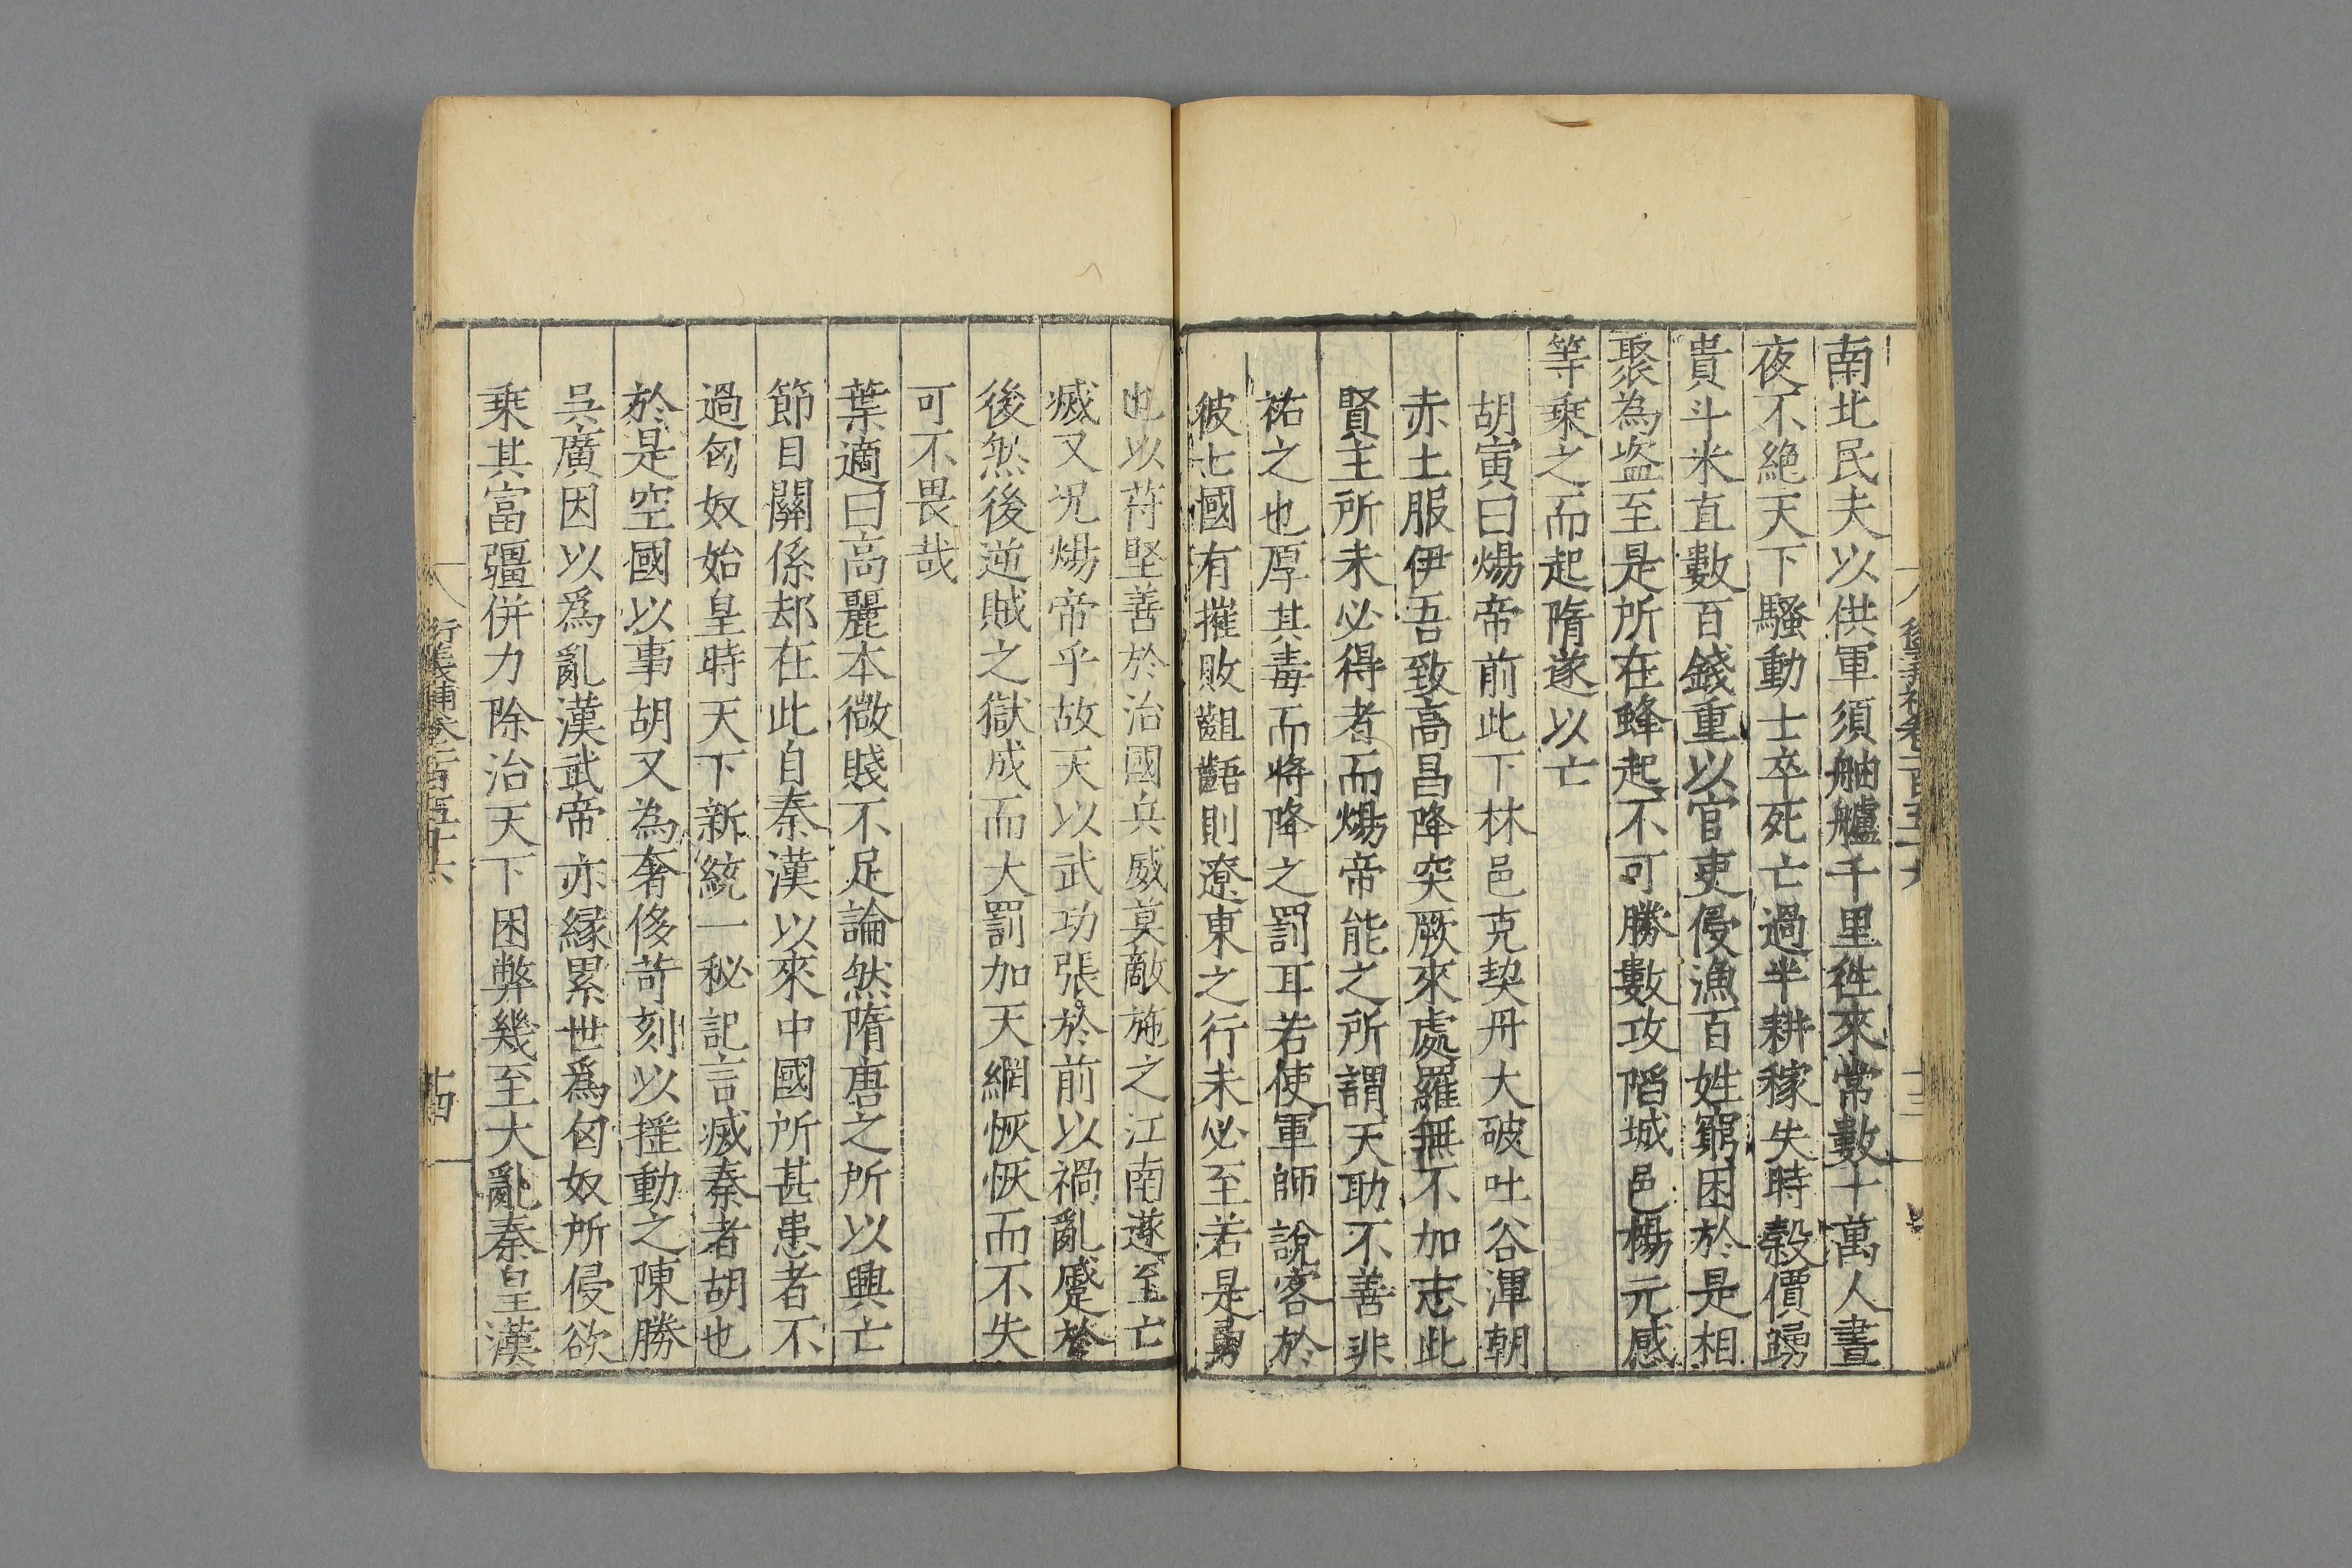 南北民夫以供軍須舳艫千里徃來常數十萬人晝
夜不絶天下騷動士卒死亡過半耕稼失時穀價踴
貴斗米直數百錢重以官吏侵漁百姓窮困於是相
聚為盗至是所在蜂起不可勝數攻陷城邑楊元感
等乗之而起隋遂以亡
胡寅曰煬帝前此下林邑克契丹大破吐谷渾朝
赤土服伊吾致高昌降突厥來處羅無不加志此
賢主所未必得者而煬帝能之所謂天助不善非
祐之也厚其毒而將降之罰耳若使軍師說客於
彼七國有摧敗齟齬則遼東之行未必至若是勇
也以苻堅善於治國兵威莫敵施之江南遂至亡
滅又况煬帝乎故天以武功張於前以禍亂蹙於
後然後逆賊之獄成而大罰加天網恢恢而不失
可不畏哉
葉適曰高麗本微賤不足論然隋唐之所以興亡
節目關係却在此自秦漢以來中國所甚患者不
過匈奴始皇時天下新統一秘記言滅秦者胡也
於是空國以事胡又為奢侈苛刻以摇動之陳勝
吳廣因以爲亂漢武帝亦縁累世爲匈奴所侵欲
乗其富疆併力除治天下困弊幾至大亂秦皇漢
衍義補卷一百五十六
十四